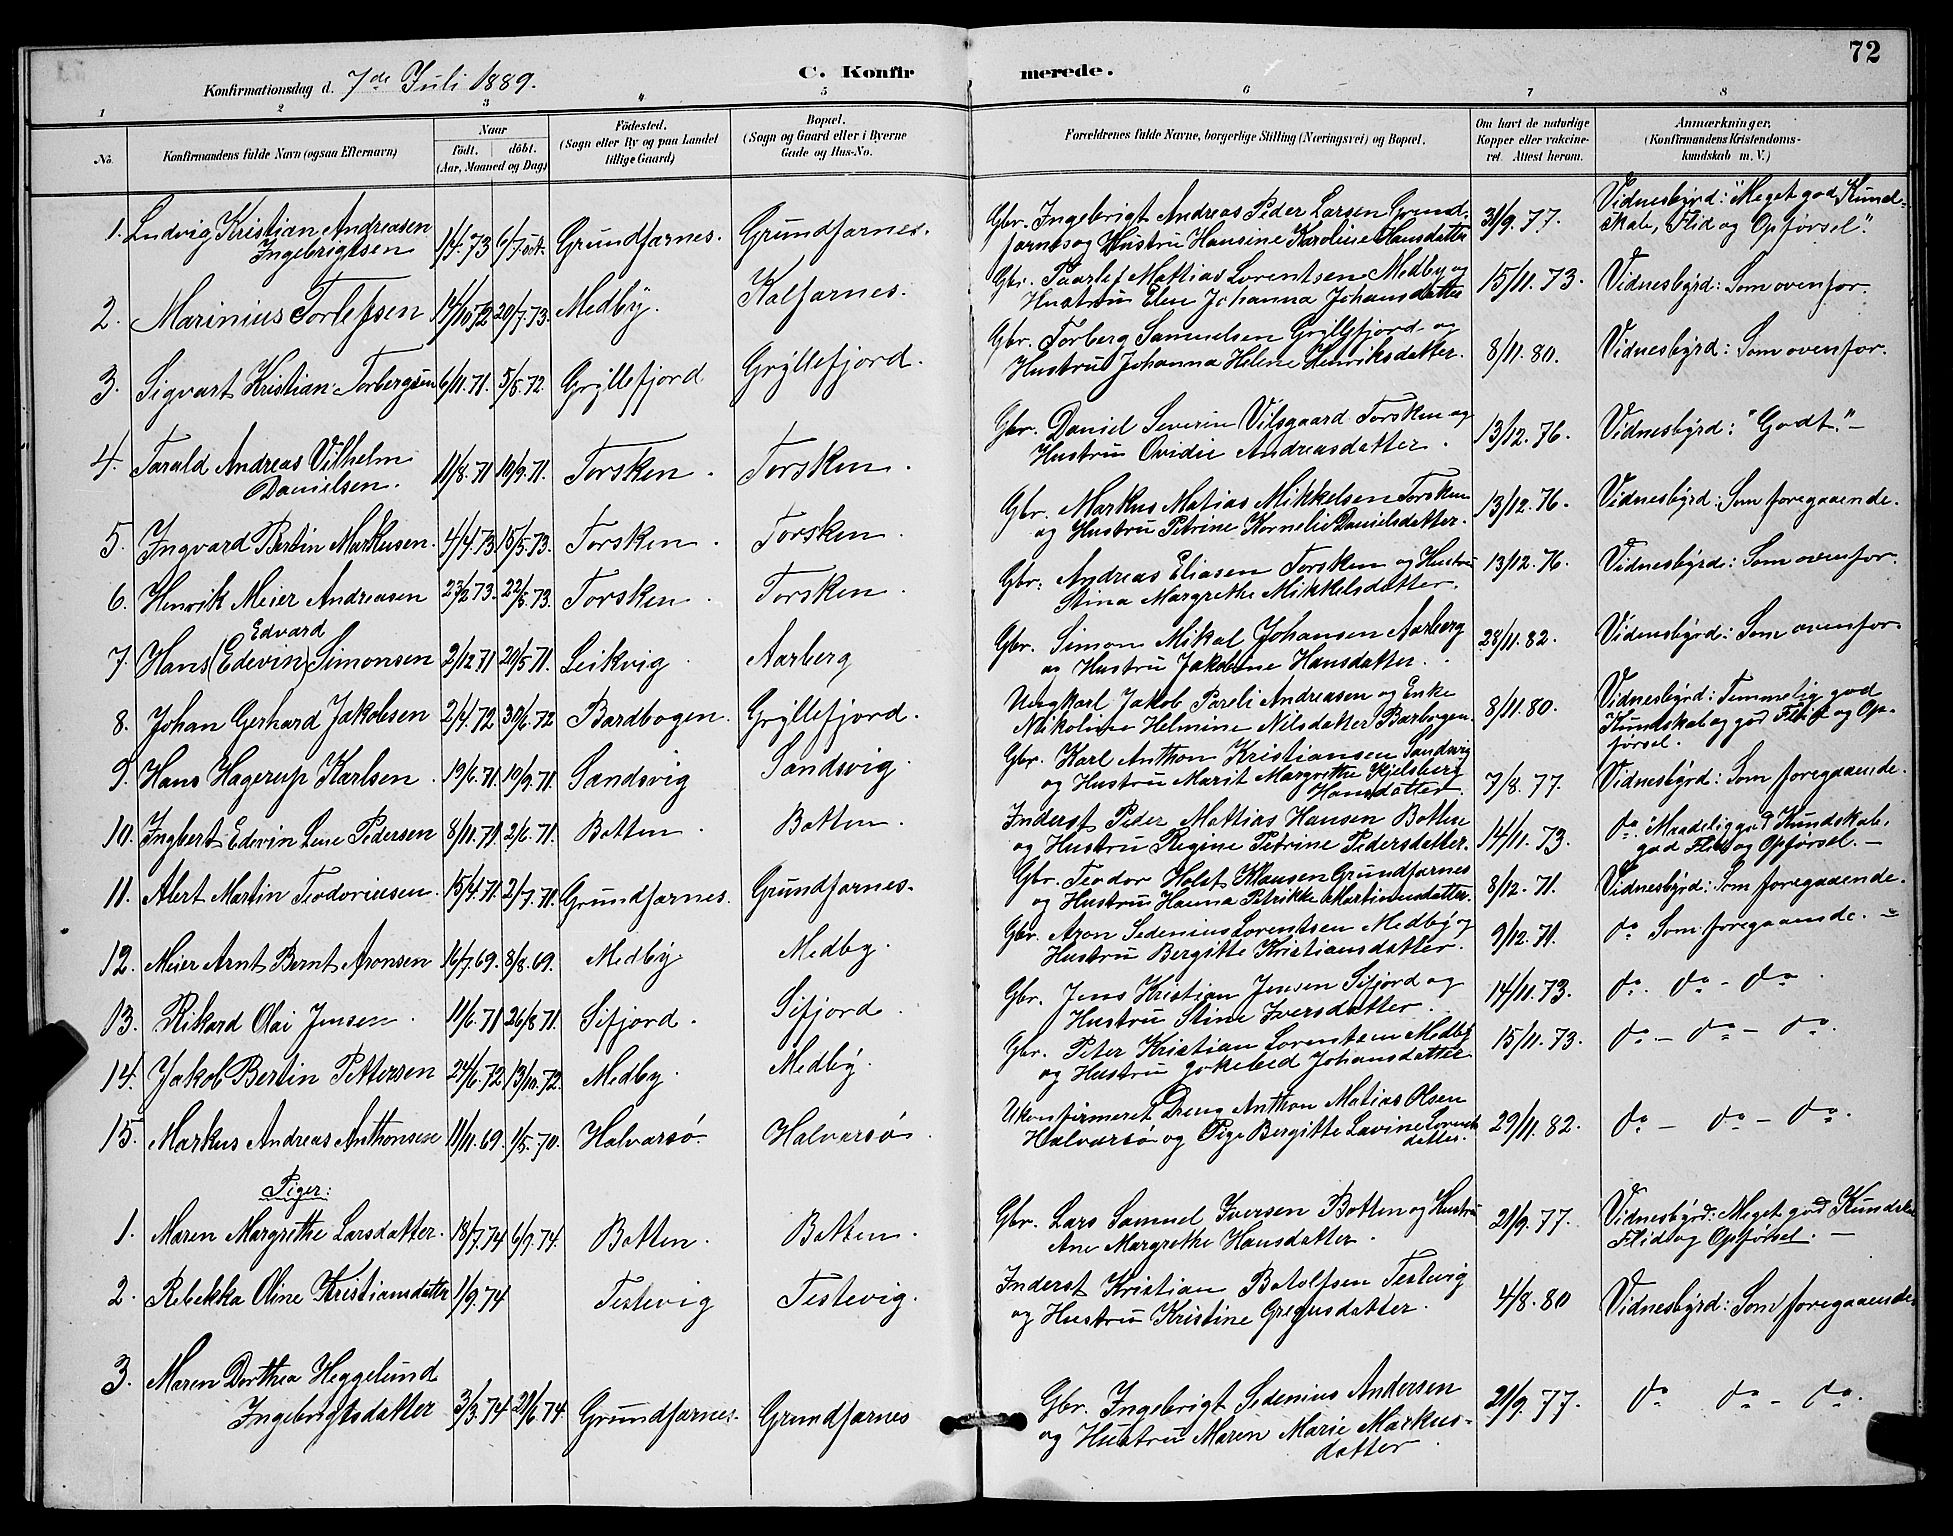 72
Konfirmationsdag d. 7de Juli 1889.
C. Konfirmerede.
1 2 3 4 5 6 7 8
No.
Konfirmandens fulde Navn (ogsaa Efternavn)
Naar
födt. döbt.
(Aar, Maaned og Dag)
Födested.
(Sogn eller By og paa Landet
tillige Gaard)
Bopæl.
(Sogn og Gaard eller i Byerne
Gade og Hus-No.
Forældrenes fulde Navne, borgerlige Stilling (Næringsvei) og Bopæl.
Om havt de naturlige
Kopper eller vakcine-
ret. Attest herom.
Anmærkninger,
(Konfirmandens Kristendoms-
kundskab m. V.)
1. Ludvig Kristian Andreasen
Ingebrigtsen 1/4.73 Grundfarnes. Grundfarnes.
Gbr. Ingebrigt Andreas Peder Larsen Grund-
farnes og Hustru Hansine Karoline Hansdatter 31/9.77.
Vidnesbyrd: "Meget god Kund-
skab, Flid og Opførsel".
2. Marinius Torlefsen 14/10.72 20/7.73. Medby. Kalfarnes.
Gbr. Taarlef Mattias Lorentsen Medby og
Hustru Elen Johanna Johansdatter 15/11.73. Vidnesbyrd: Som ovenfor.
3. Sigvart Kristian Torbergsen 6/11.71. 5/5.72. Gryllefjord Gryllefjord.
Gbr. Torberg Samuelsen Gryllefjord og
Hustru Johanna Helene Henriksdatter. 8/11.80. Vidnesbyrd: Som ovenfor.
4. Tarald Andreas Vilhelm
Danielsen. 11/8.71 19/9.71. Torsken. Torsken.
Gbr. Daniel Severin Vilsgaard Torsken og
Hustru Ovidie Andreasdatter. 13/12.76. Vidnesbyrd: "Godt".-
5. Ingvard Bertin Markusen. 4/4.73. 18/5.73. Torsken. Torsken.
Gbr. Markus Matias Mikkelsen Torsken
og Hustru Petrine Kornelie Danielsdatter. 13/12.76. Vidnesbyrd: Som foregaaende.
6. Henrik Meier Andreasen 23/2.73. 22/5.73. Torsken. Torsken.
Gbr: Andreas Eliasen Torsken og Hustru
Stina Margrethe Mikkelsdatter. 13/12.76. Vidnesbyrd: Som ovenfor.
Edvard
7. Hans (Edevin) Simonsen 2/12.71 20/5.71. Leikvig. Aarberg
Gbr. Simon Mikal Johansen Aarberg
og Hustru Jakobine Hansdatter. 28/11.82. Vidnesbyrd: Som ovenfor
8. Johan Gerhard Jakobsen 2/4.72 30/6.72 Bardbogen. Gryllefjord.
Ungkarl Jakob Pareli Andreasen og Enke
Nikoline Helmine Nilsdatter Barbogen. 8/11.80.
Vidnesbyrd: Temmelig god
Kundskab og god Flid og Op-
førsel.
9. Hans Hagerup Karlsen. 19/6.71. 19/9.71. Sandsvig Sandsvig.
Gbr. Karl Anthon Kristiansen Sandsvig
og Hustru Marit Margrethe Kjelsberg
Hansdatter 7/8.77. Vidnesbyrd: Som foregaaende.
10. Ingbert Edevin Lene Pedersen 8/11.71 2/6.71. Botten. Botten.
Inderst Peder Mattias Hansen Botten
og Hustru Regine Petrine Pedersdatter. 14/11.73.
do. Maadelig god Kundskab,
god Flid og Opførsel.-
11. Alert Martin Teodoriusen. 15/4.71. 2/7.71. Grundfarnes. Grundfarnes.
Gbr. Teodor Holst Klausen Grundfarnes
og Hustru Hanna Petrikke Martinusdatter. 8/12.71. Vidnesbyrd: Som foregaaende.
12. Meier Arnt Bernt Aronsen 16/7.69. 8/8.69. Medby Medby.
Gbr. Aron Sedenius Lorentsen Medby og
Hustru Bergitte Kristiansdatter. 9/12.71. do Som foregaaende.-
13. Rikard Olai Jensen. 11/6.71 26/8.71. Sifjord. Sifjord.
Gbr. Jens Kristian Jensen Sifjord og
Hustru Stine Iversdatter. 14/11.73. do. do - do.
14. Jakob Bertin Pettersen 24/6.72 13/10.72. Medby. Medby.
Gbr. Peter Kristian Lorentsen Medby
og Hustru Jokebed Johansdatter 15/11.73. do - do - do.
15. Markus Andreas Anthonsen 11/11.69. 1/5.70. Halvarsø. Halvarsø.
Ukonfirmeret Dreng Anthon Matias Olsen
Halvarsø og Pige Bergitte Lavine Lorents
datter. 29/11.82. do - do - do.
Piger:
1. Maren Margrethe Larsdatter. 18/7.74 6/9.74. Botten. Botten.
Gbr. Lars Samuel Iversen Botten og Hustru
Ane Margrethe Hansdatter. 21/9.77.
Vidnesbyrd: Meget god Kundskab
Flid og Opførsel.-
2. Rebekka Oline Kristiansdatter 1/9.74 Testevig Testevig.
Inderst Kristian Botolfsen Testevig
og Hustru Kristine Gregusdatter. 4/8.80 Vidnesbyrd: Som foregaaende
3. Maren Dorthea Heggelund
Ingebrigtsdatter 3/3.74 21/6.74 Grundfarnes. Grundfarnes
Gbr. Ingebrigt Sedenius Andersen
og Hustru Maren Marie Markus-
datter. 21/9.77. do do - do.